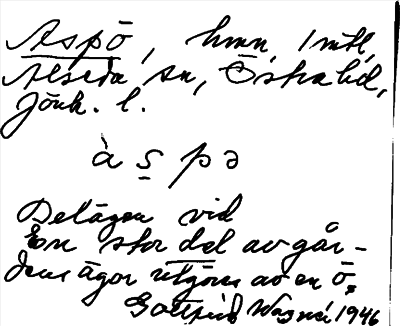 Aspö, hmn, 1 mtl,
Alseda sn, Östra hd,
Jönk. l.
à s̠ p ə
Belägen vid
En stor del av går-
dens ägor utgöres av en ö.
Gottfrid Wagnér 1946